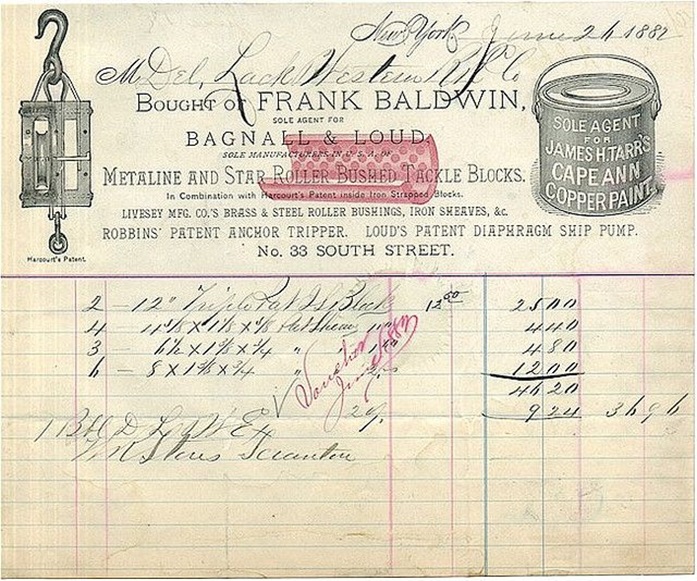 New York, June 26 1882
M Del, Lack & Western R.R. Co
BOUGHT OF FRANK BALDWIN,
SOLE AGENT FOR
BAGNALL & LOUD,
SOLE MANUFACTURERS IN U.S.A. OF
METALINE AND STAR ROLLER BUSHED TACKLE BLOCKS.
In Combination with Harcourt's Patent inside Iron Strapped Blocks.
LIVESEY MFG. CO.'S BRASS & STEEL ROLLER BUSHINGS, IRON SHEAVES, &c.
ROBBINS' PATENT ANCHOR TRIPPER. LOUD'S PATENT DIAPHRAGM SHIP PUMP.
No. 33 SOUTH STREET.
Harcourt's Patent.
SOLE AGENT
FOR
JAMES H. TARR'S
CAPE ANN
COPPER PAINT.
2 - 12" Triple Pat Block 12 50 25 00
4 1 1/8 4 40
3 1 3/8 X 3/4 " 4 80
6 - 8 X 1 3/8 X 3/4 " 12 00
46 20
9 24 36 96
Voucher
June 1882
1 Bbl D L & W Ex
Stores Scranton